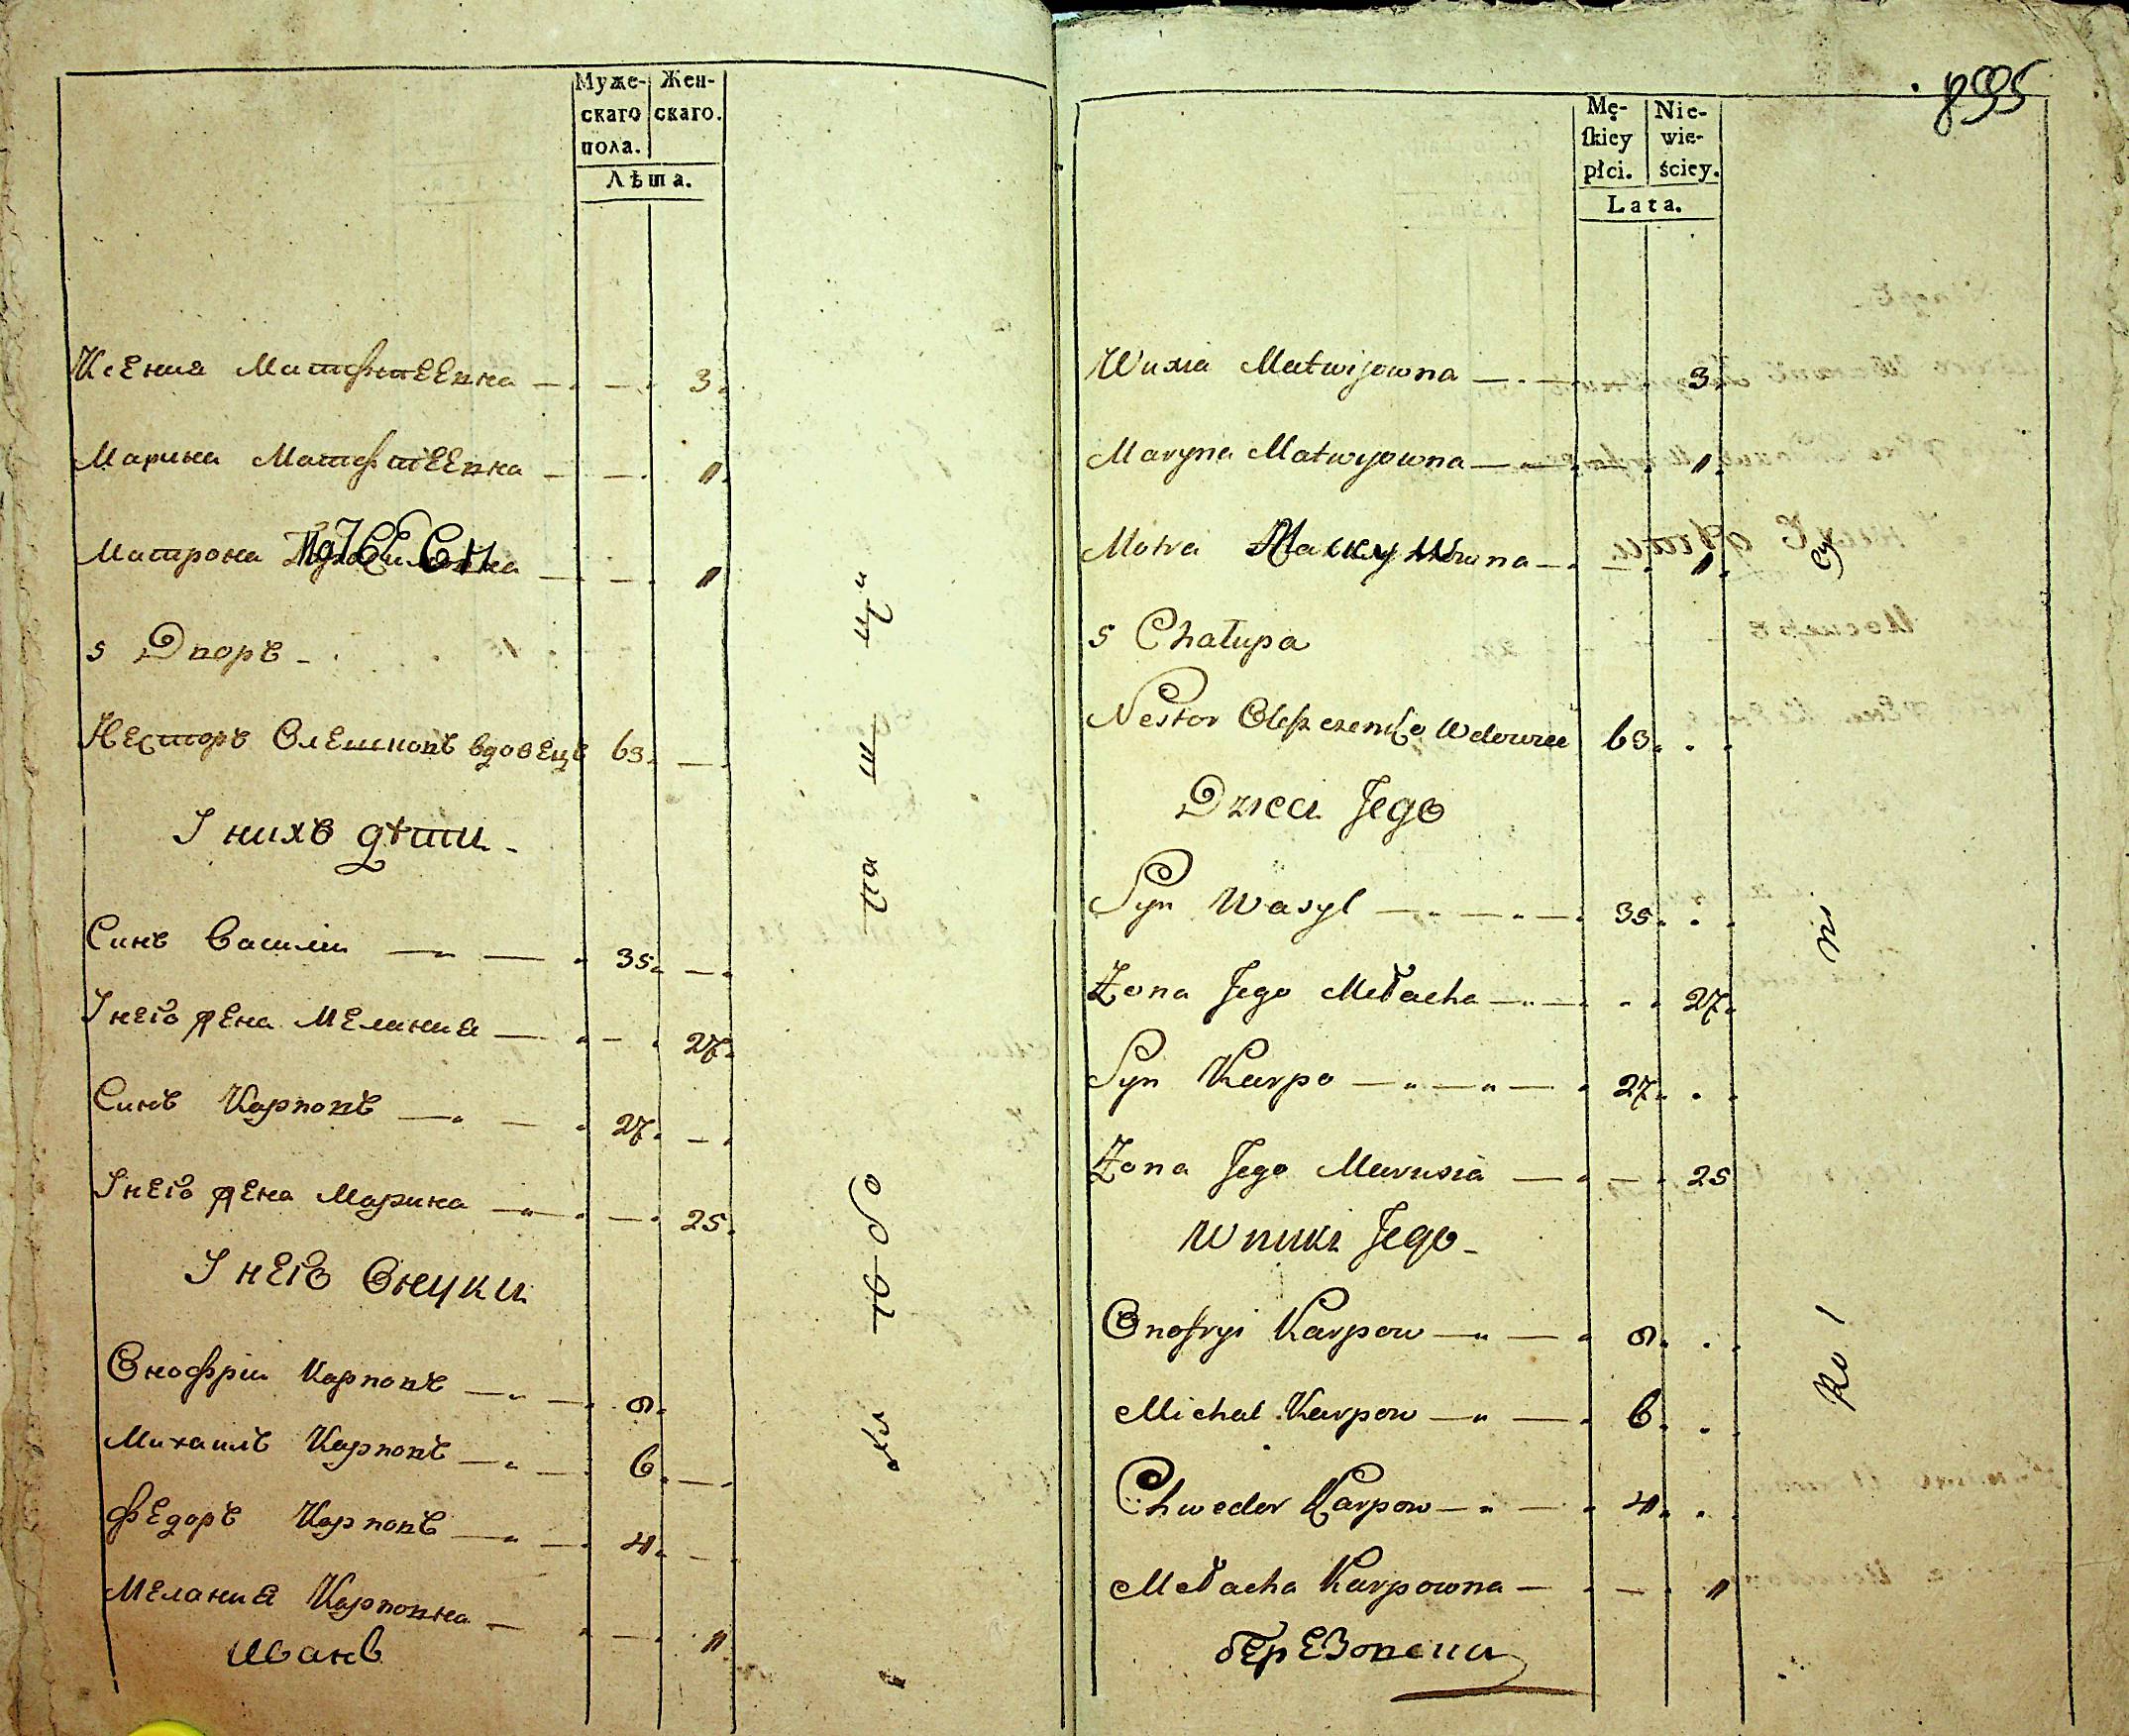 Муже-
скаго
пола.
Жен-
скаго.
Лѣта.
Ксения Матфѣевна 3
Марина Матфѣевна 11
Матрона
5 Дворъ
Нестеръ Олешковъ вдовецъ 63
І нихъ дѣти
Синъ Василій 35
І него жена Мелания 27
Синъ Карповъ 27
І него жена Марина 25
І него Внуки
Онофрій Карповъ 9
Михаилъ Карповъ 6
Федоръ Карповъ 4
Мелания Карповна 11
Иванъ
895
Mę-
ſkiey
płci.
Nie-
wie-
ściey.
Lata.
Matwijowna 3
Maryna Matwijowna 11
Motra
5 Chałupa
Nestor 63
Dzieci Jego
Syn Wasyl 35
Żona Jego Mełacha 27
Syn Karpo 27
Żona Jego Marusia 25
Wnuki Jego
Onofryi Karpow 9
Michal Karpow 6
Chwedor Karpow 4
Mełacha Karpowna 11